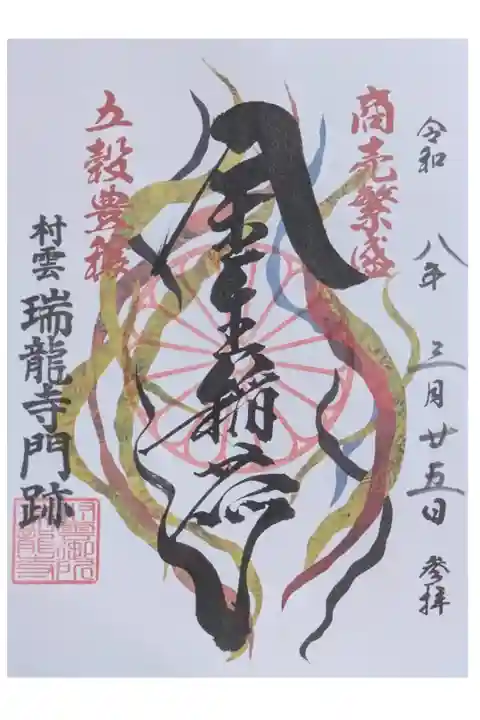 令和 八年 三月 廿五日 参拝
商売繁盛
金 稲荷
五穀豊穣
村雲 瑞龍寺門跡
村雲御所
瑞龍寺